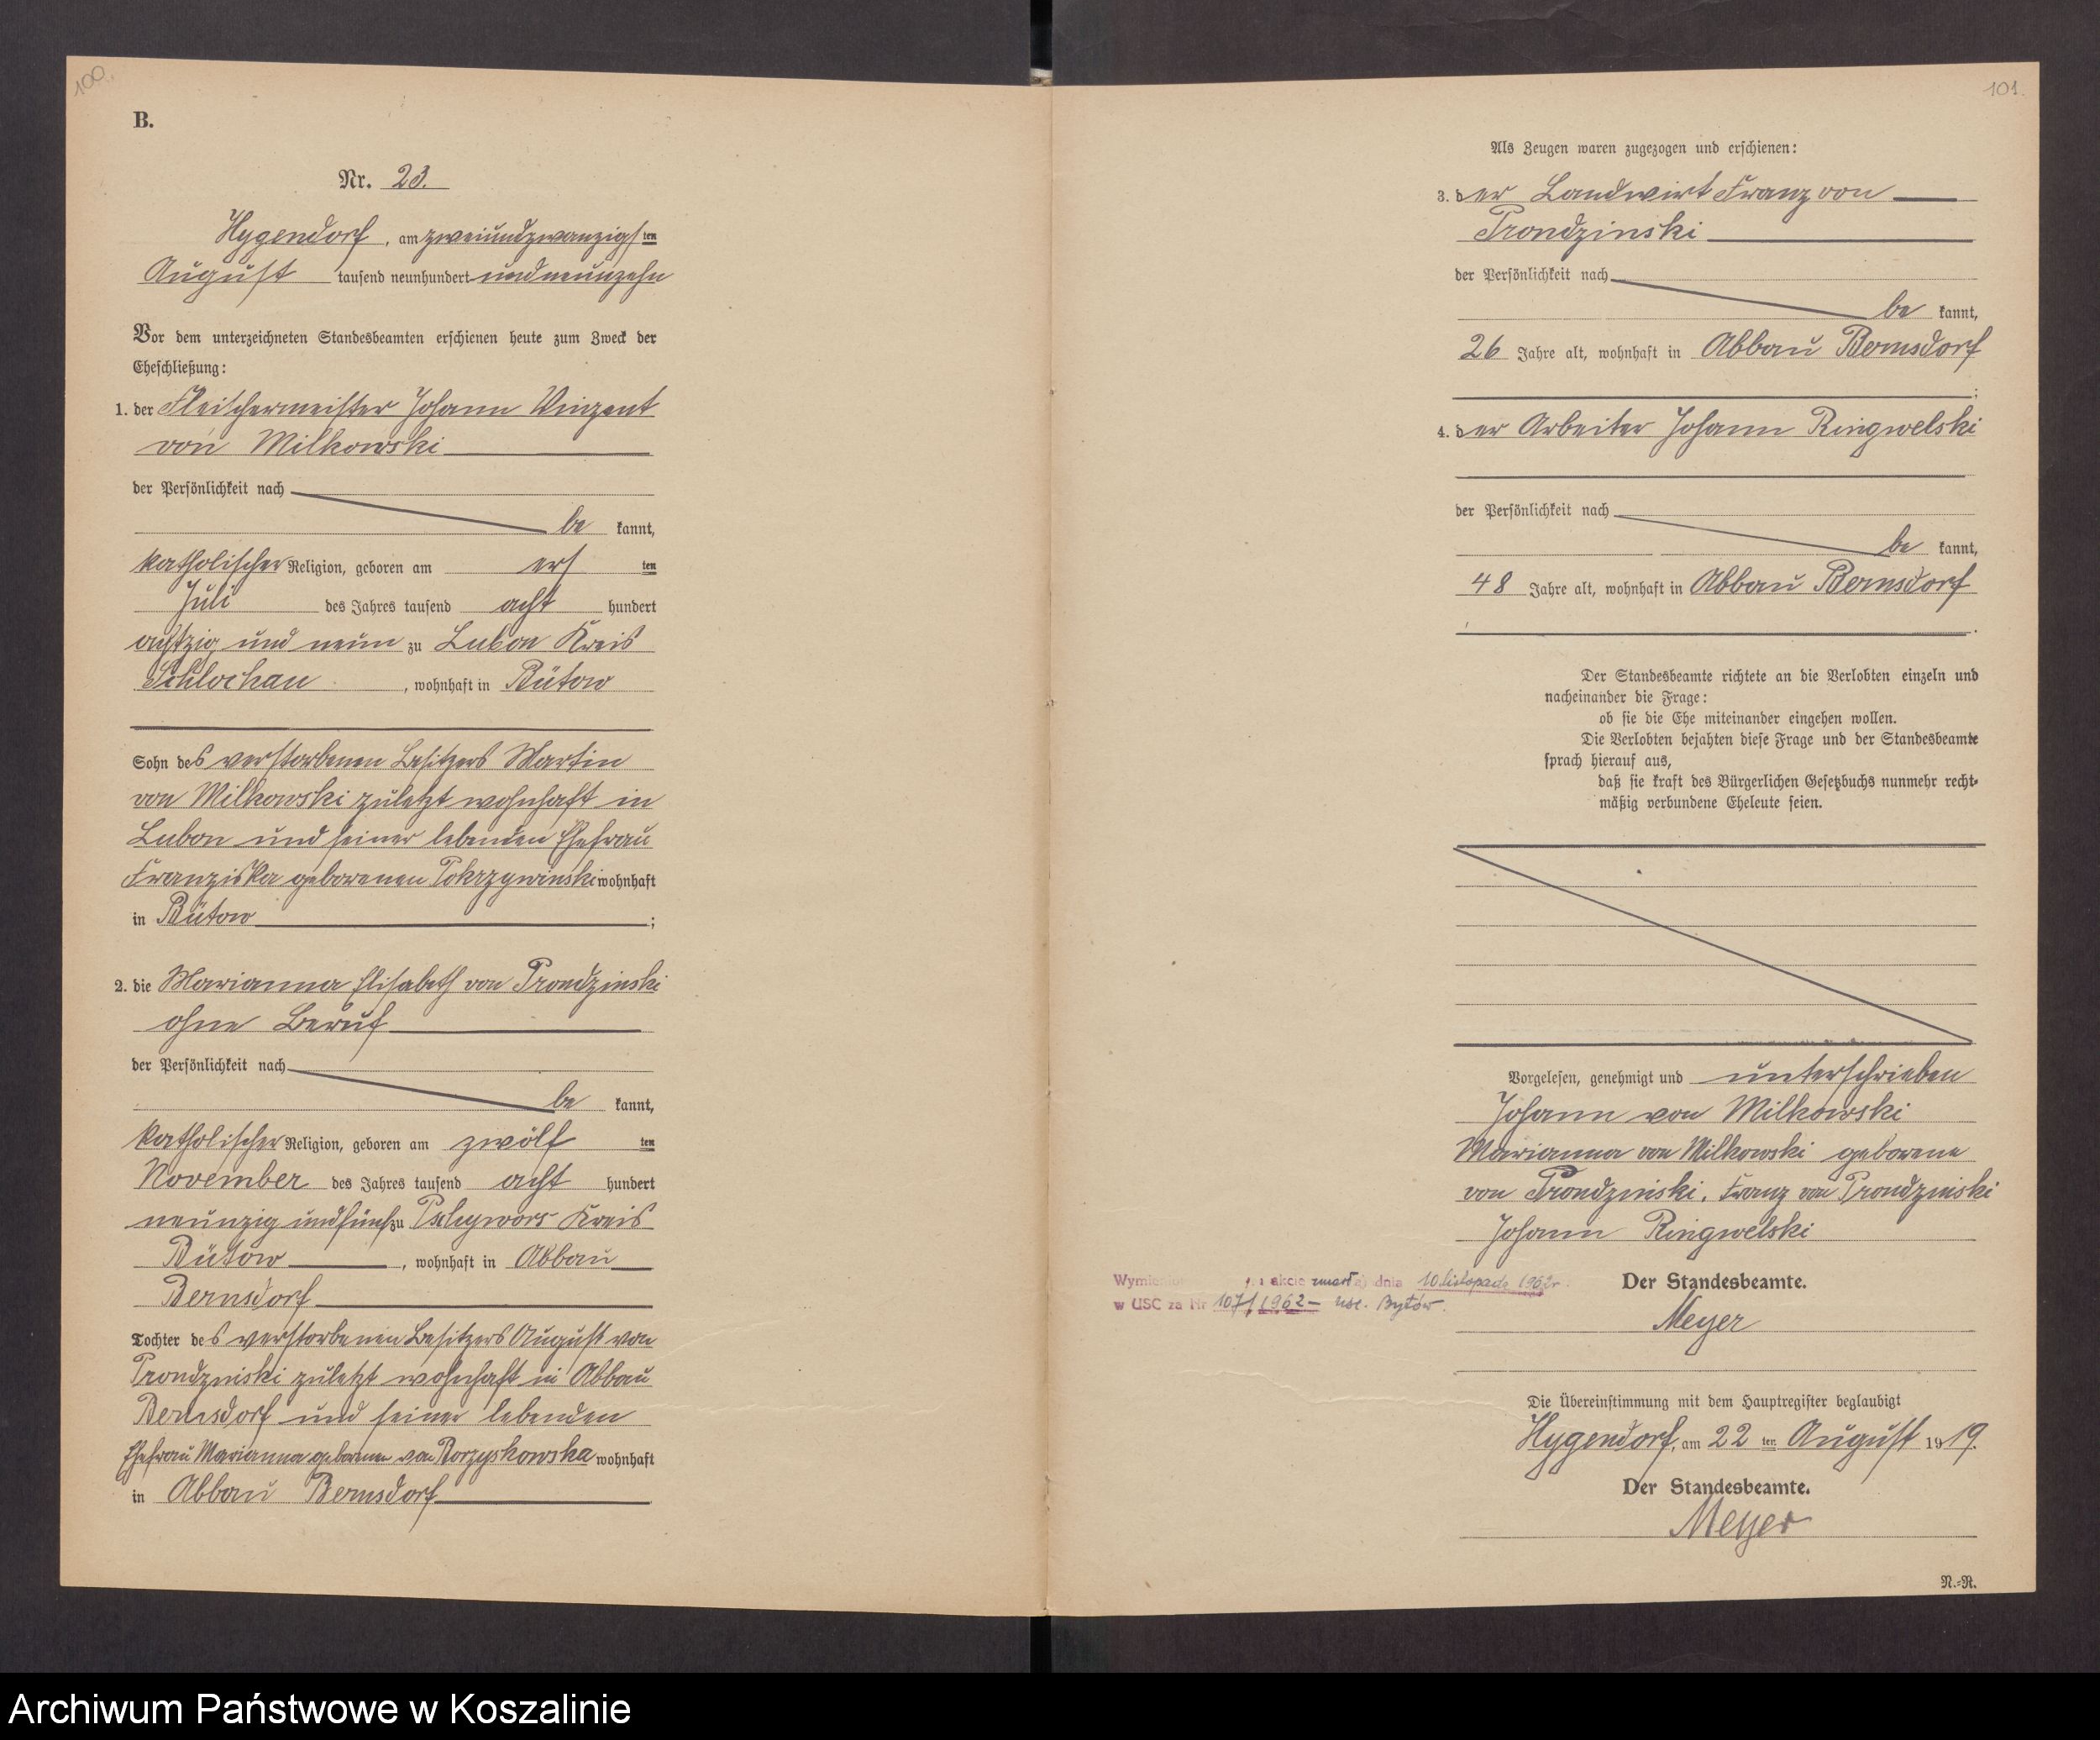 100.
B.
Nr. 23.
Hygendorf, am zweiundzwanzigsten
August tausend neunhundert undneunzehn
Vor dem unterzeichneten Standesbeamten erschienen heute zum Zweck der
Eheschließung:
1. der Fleischermeister Johann Vinzent
von Milkowski
der Persönlichkeit nach
be kannt,
katholischer Religion, geboren am ersten
Juli des Jahres tausend acht hundert
achtzig und neun zu Lubon Kreis
Schlochau, wohnhaft in Bütow
Sohn des verstorbenen Besitzers Martin
von Milkowski zuletzt wohnhaft in
Lubon und seiner lebenden Ehefrau
Franziska geborenen Pokrzywinski wohnhaft
in Bütow;
2. die Marianna Elisabeth von Prondzinski
ohne Beruf
der Persönlichkeit nach
be kannt,
katholischer Religion, geboren am zwölf ten
November des Jahres tausend acht hundert
neunzig und fünf zu Kreis
Bütow, wohnhaft in Abbau
Bernsdorf
Tochter des verstorbenen Besitzers August von
Prondzinski zuletzt wohnhaft in Abbau
Bernsdorf und seiner lebenden
Ehefrau Marianna geborenen von Borzyskowska wohnhaft
in Abbau Bernsdorf
101.
Als Zeugen waren zugezogen und erschienen:
3. der Landwirt Franz von
Prondzinski
der Persönlichkeit nach
be kannt,
26 Jahre alt, wohnhaft in Abbau Bernsdorf
;
4. der Arbeiter Johann Ringwelski
der Persönlichkeit nach
be kannt,
48 Jahre alt, wohnhaft in Abbau Bernsdorf
.
Der Standesbeamte richtete an die Verlobten einzeln und
nacheinander die Frage:
ob sie die Ehe miteinander eingehen wollen.
Die Verlobten bejahten diese Frage und der Standesbeamte
sprach hierauf aus,
daß sie kraft des Bürgerlichen Gesetzbuchs nunmehr recht-
mäßig verbundene Eheleute seien.
Vorgelesen, genehmigt und unterschrieben
Johann von Milkowski
Marianna von Milkowski geborene
von Prondzinski. Franz von Prondzinski
Johann Ringwelski
akcie zmarł dnia 10 listopada 1962r.
w USC za Nr 107/1962 – usc. Bytów.
Der Standesbeamte.
Meyer
Die Übereinstimmung mit dem Hauptregister beglaubigt
Hygendorf, am 22 ten August 1919.
Der Standesbeamte.
Meyer
N.-R.
Archiwum Państwowe w Koszalinie